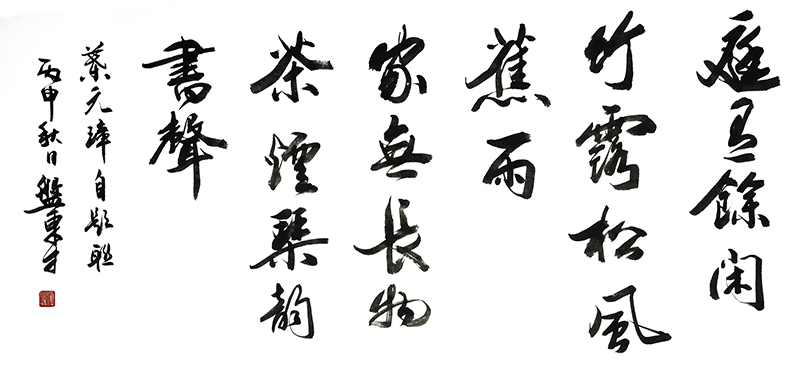 庭有餘闲
竹露松風
蕉雨
家無長物
茶煙琴韵
書聲
葉元璋自題聯
丙申秋日盤東才